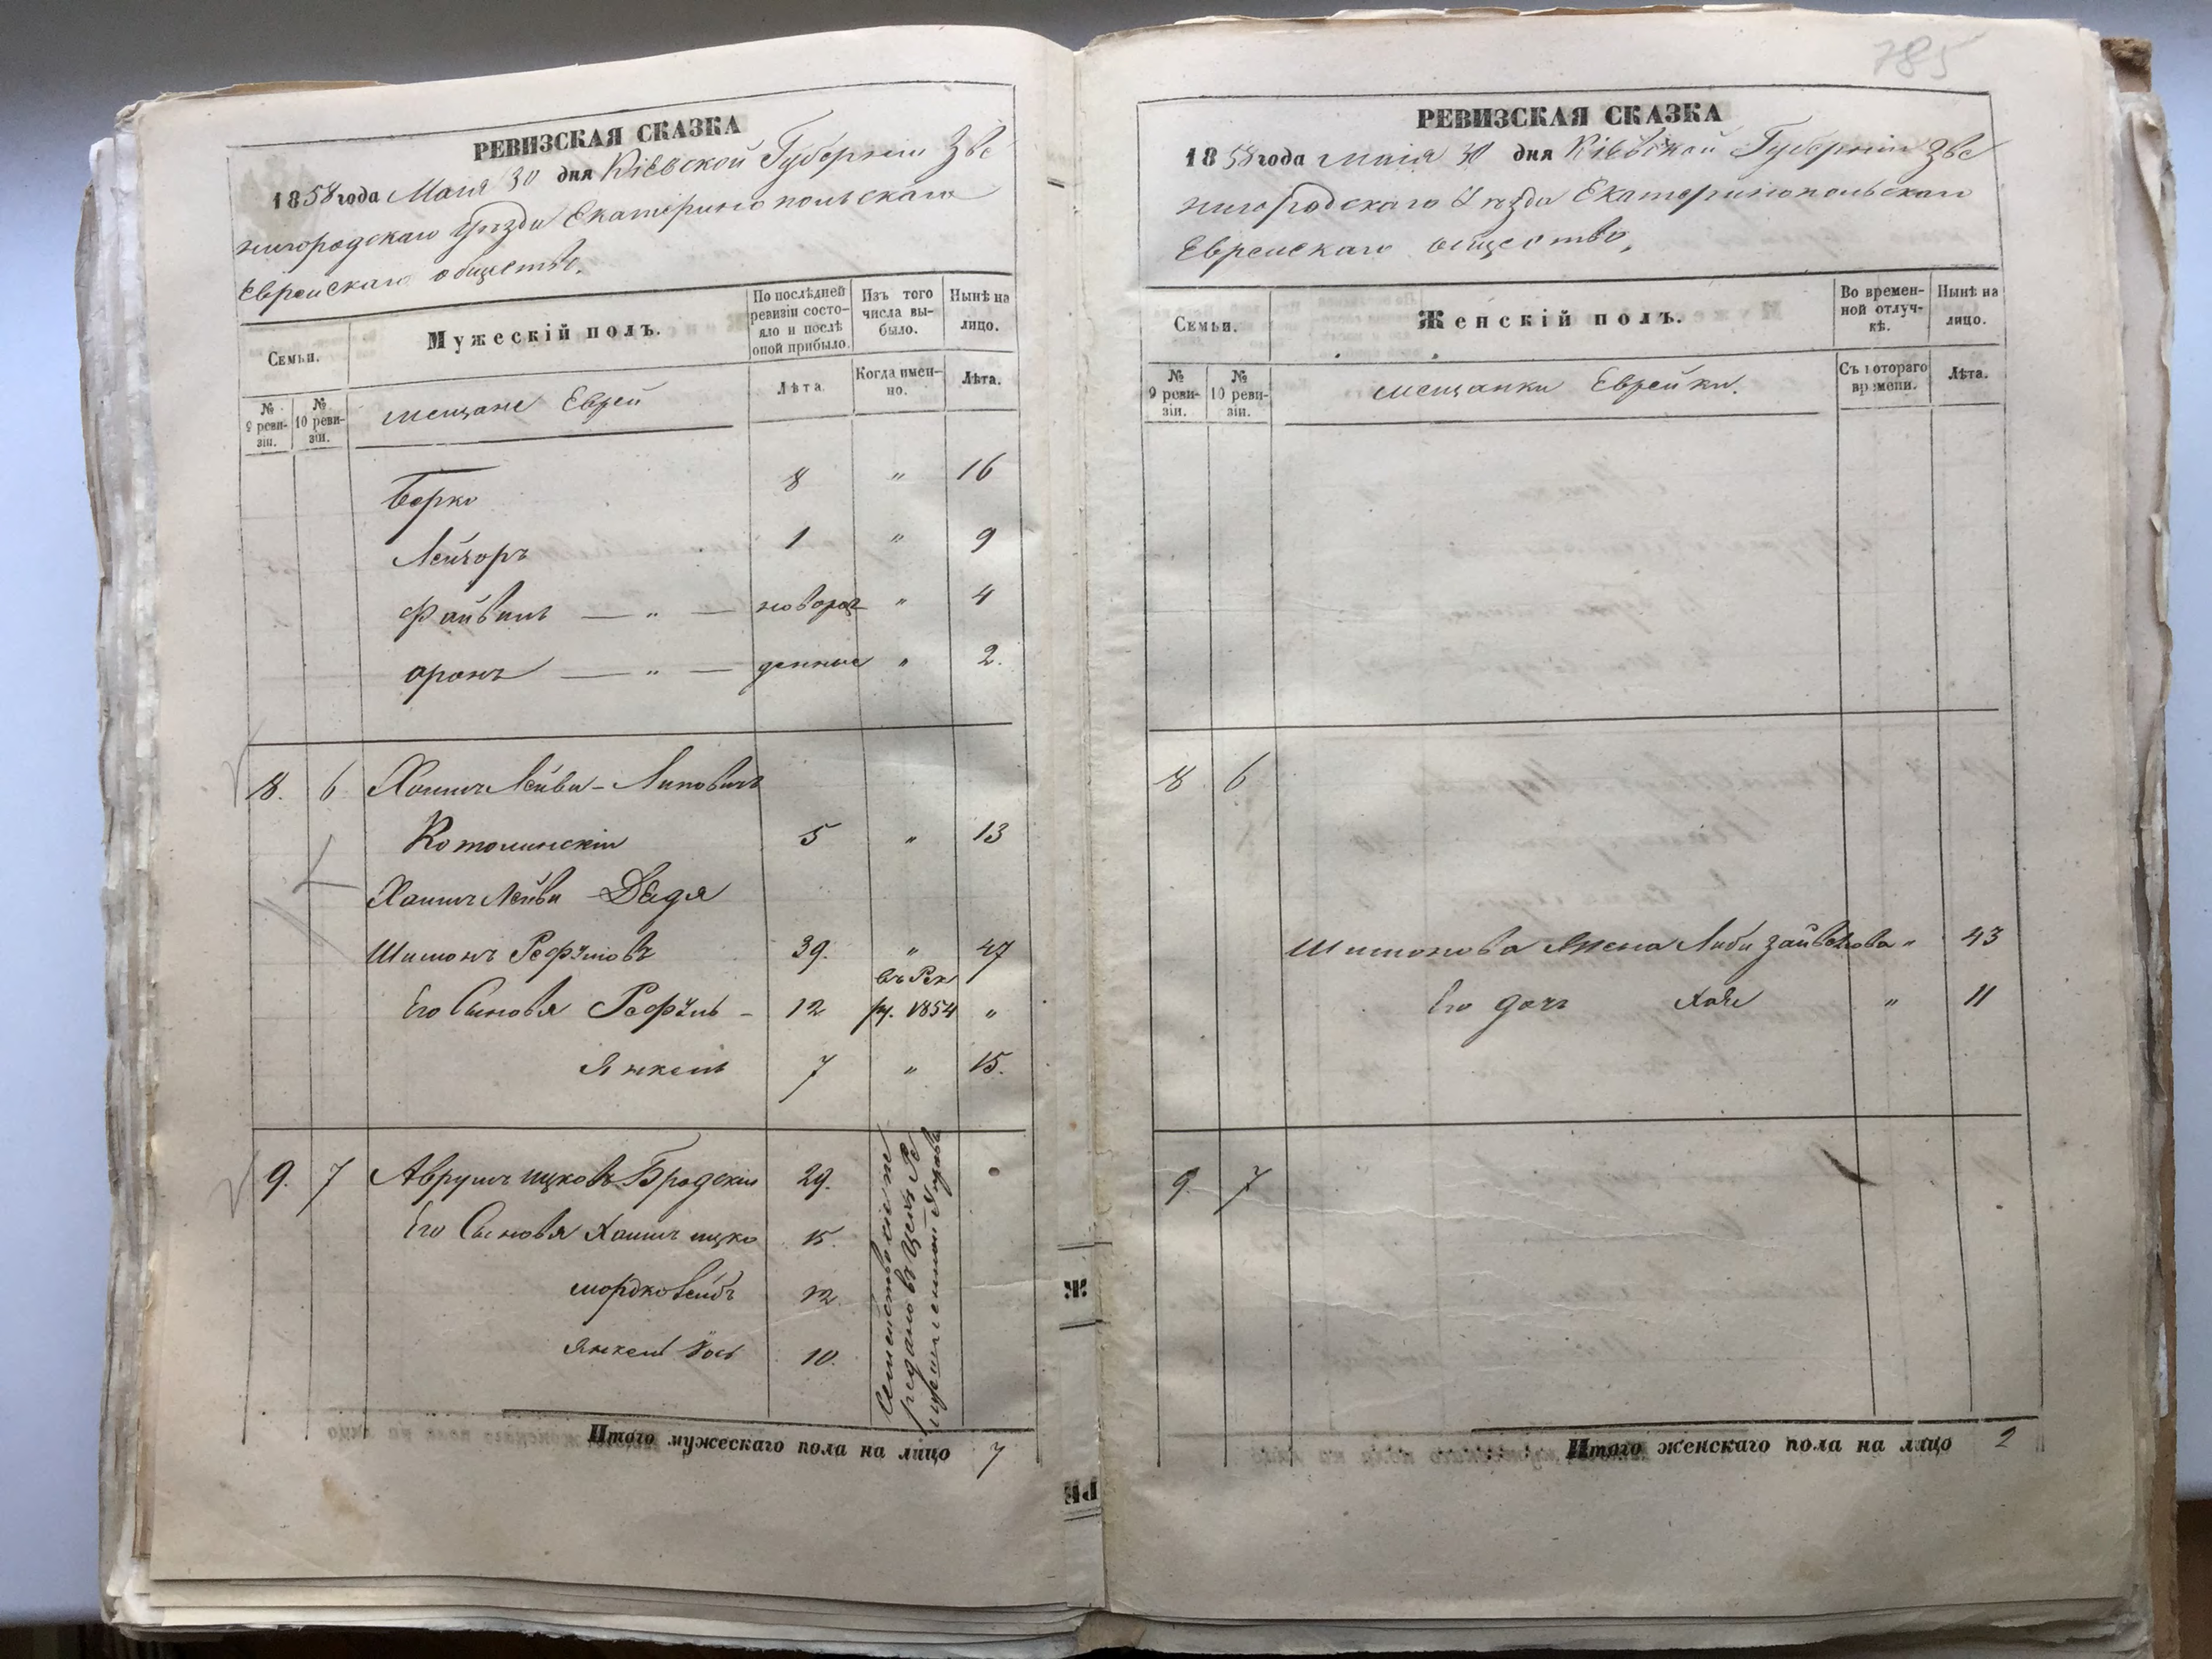 РЕВИЗСКАЯ СКАЗКА
1858 года Маия 30 дня Кіевской Губерніи Зве
нигородскаго Уѣзда Екатеринопольскаго
Еврейскаго общества.
Семьи.
Мужескій полъ.
По послѣдней ревизіи состояло и послѣ оной прибыло.
Изъ того числа выбыло.
Нынѣ на лицо.
№ 9 ревизіи.
№ 10 ревизіи.
мещане Евреи
Лѣта.
Когда именно.
Лѣта.
Берко 8 " 16
Лейзоръ 1 " 9
Файвель — " — новорож " 4
Оронъ — " — денные " 2.
8. 6 Хаимъ Лейви - Липовичъ
5 " 13
Хаимъ Лейви Дядя
Шимонъ Рефуловъ 39. " 47
Его Сыновья Рефулъ - 12 въ Рек ру. 1854 "
Янкель 7 " 15.
9. 7 Аврумъ Ицковъ Бродскій 29.
Его Сыновья Хаимъ Ицко 15.
Мордко Лейбъ 12.
Янкель Іось 10.
Семейство сіе пе
редано въ
Итого мужескаго пола на лицо 7
785
РЕВИЗСКАЯ СКАЗКА
1858 года маія 30 дня Кіевской Губерніи Зве
нигородскаго Уѣзда Екатеринопольскаго
Еврейскаго общества,
Семьи.
Женскій полъ.
Во временной отлучкѣ.
Нынѣ на лицо.
№ 9 ревизіи.
№ 10 ревизіи.
мещанки Еврейки.
Съ котораго времени.
Лѣта.
8 6
Шимонова Жена Либа Зайвелова " 43
Его дочь Хая " 11
9. 7
Итого женскаго пола на лицо 2